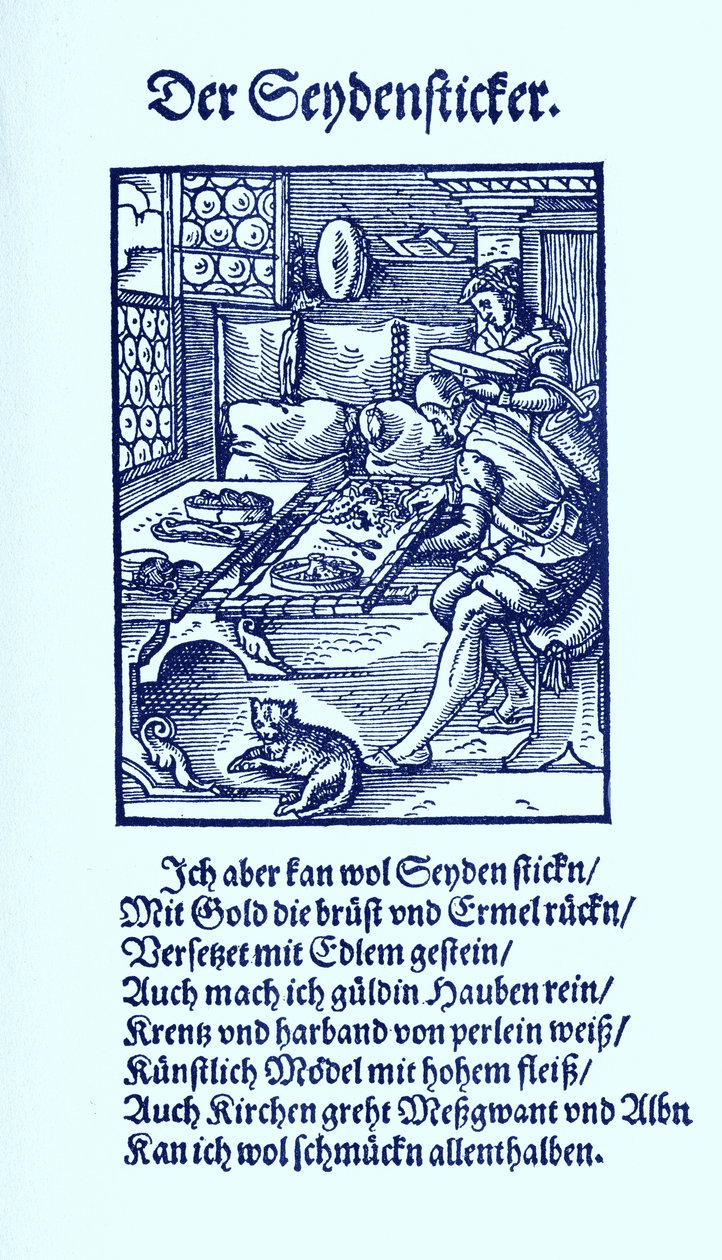 Der Seydensticker.
Ich aber kan wol Seyden stickn/
Mit Gold die brüst vnd Ermel rückn/
Versetzet mit Edlem gestein/
Auch mach ich güldin Hauben rein/
Krentz vnd harband von perlein weiß/
Künstlich Mödel mit hohem fleiß/
Auch Kirchen greht Meßgwant vnd Albn
Kan ich wol schmückn allenthalben.